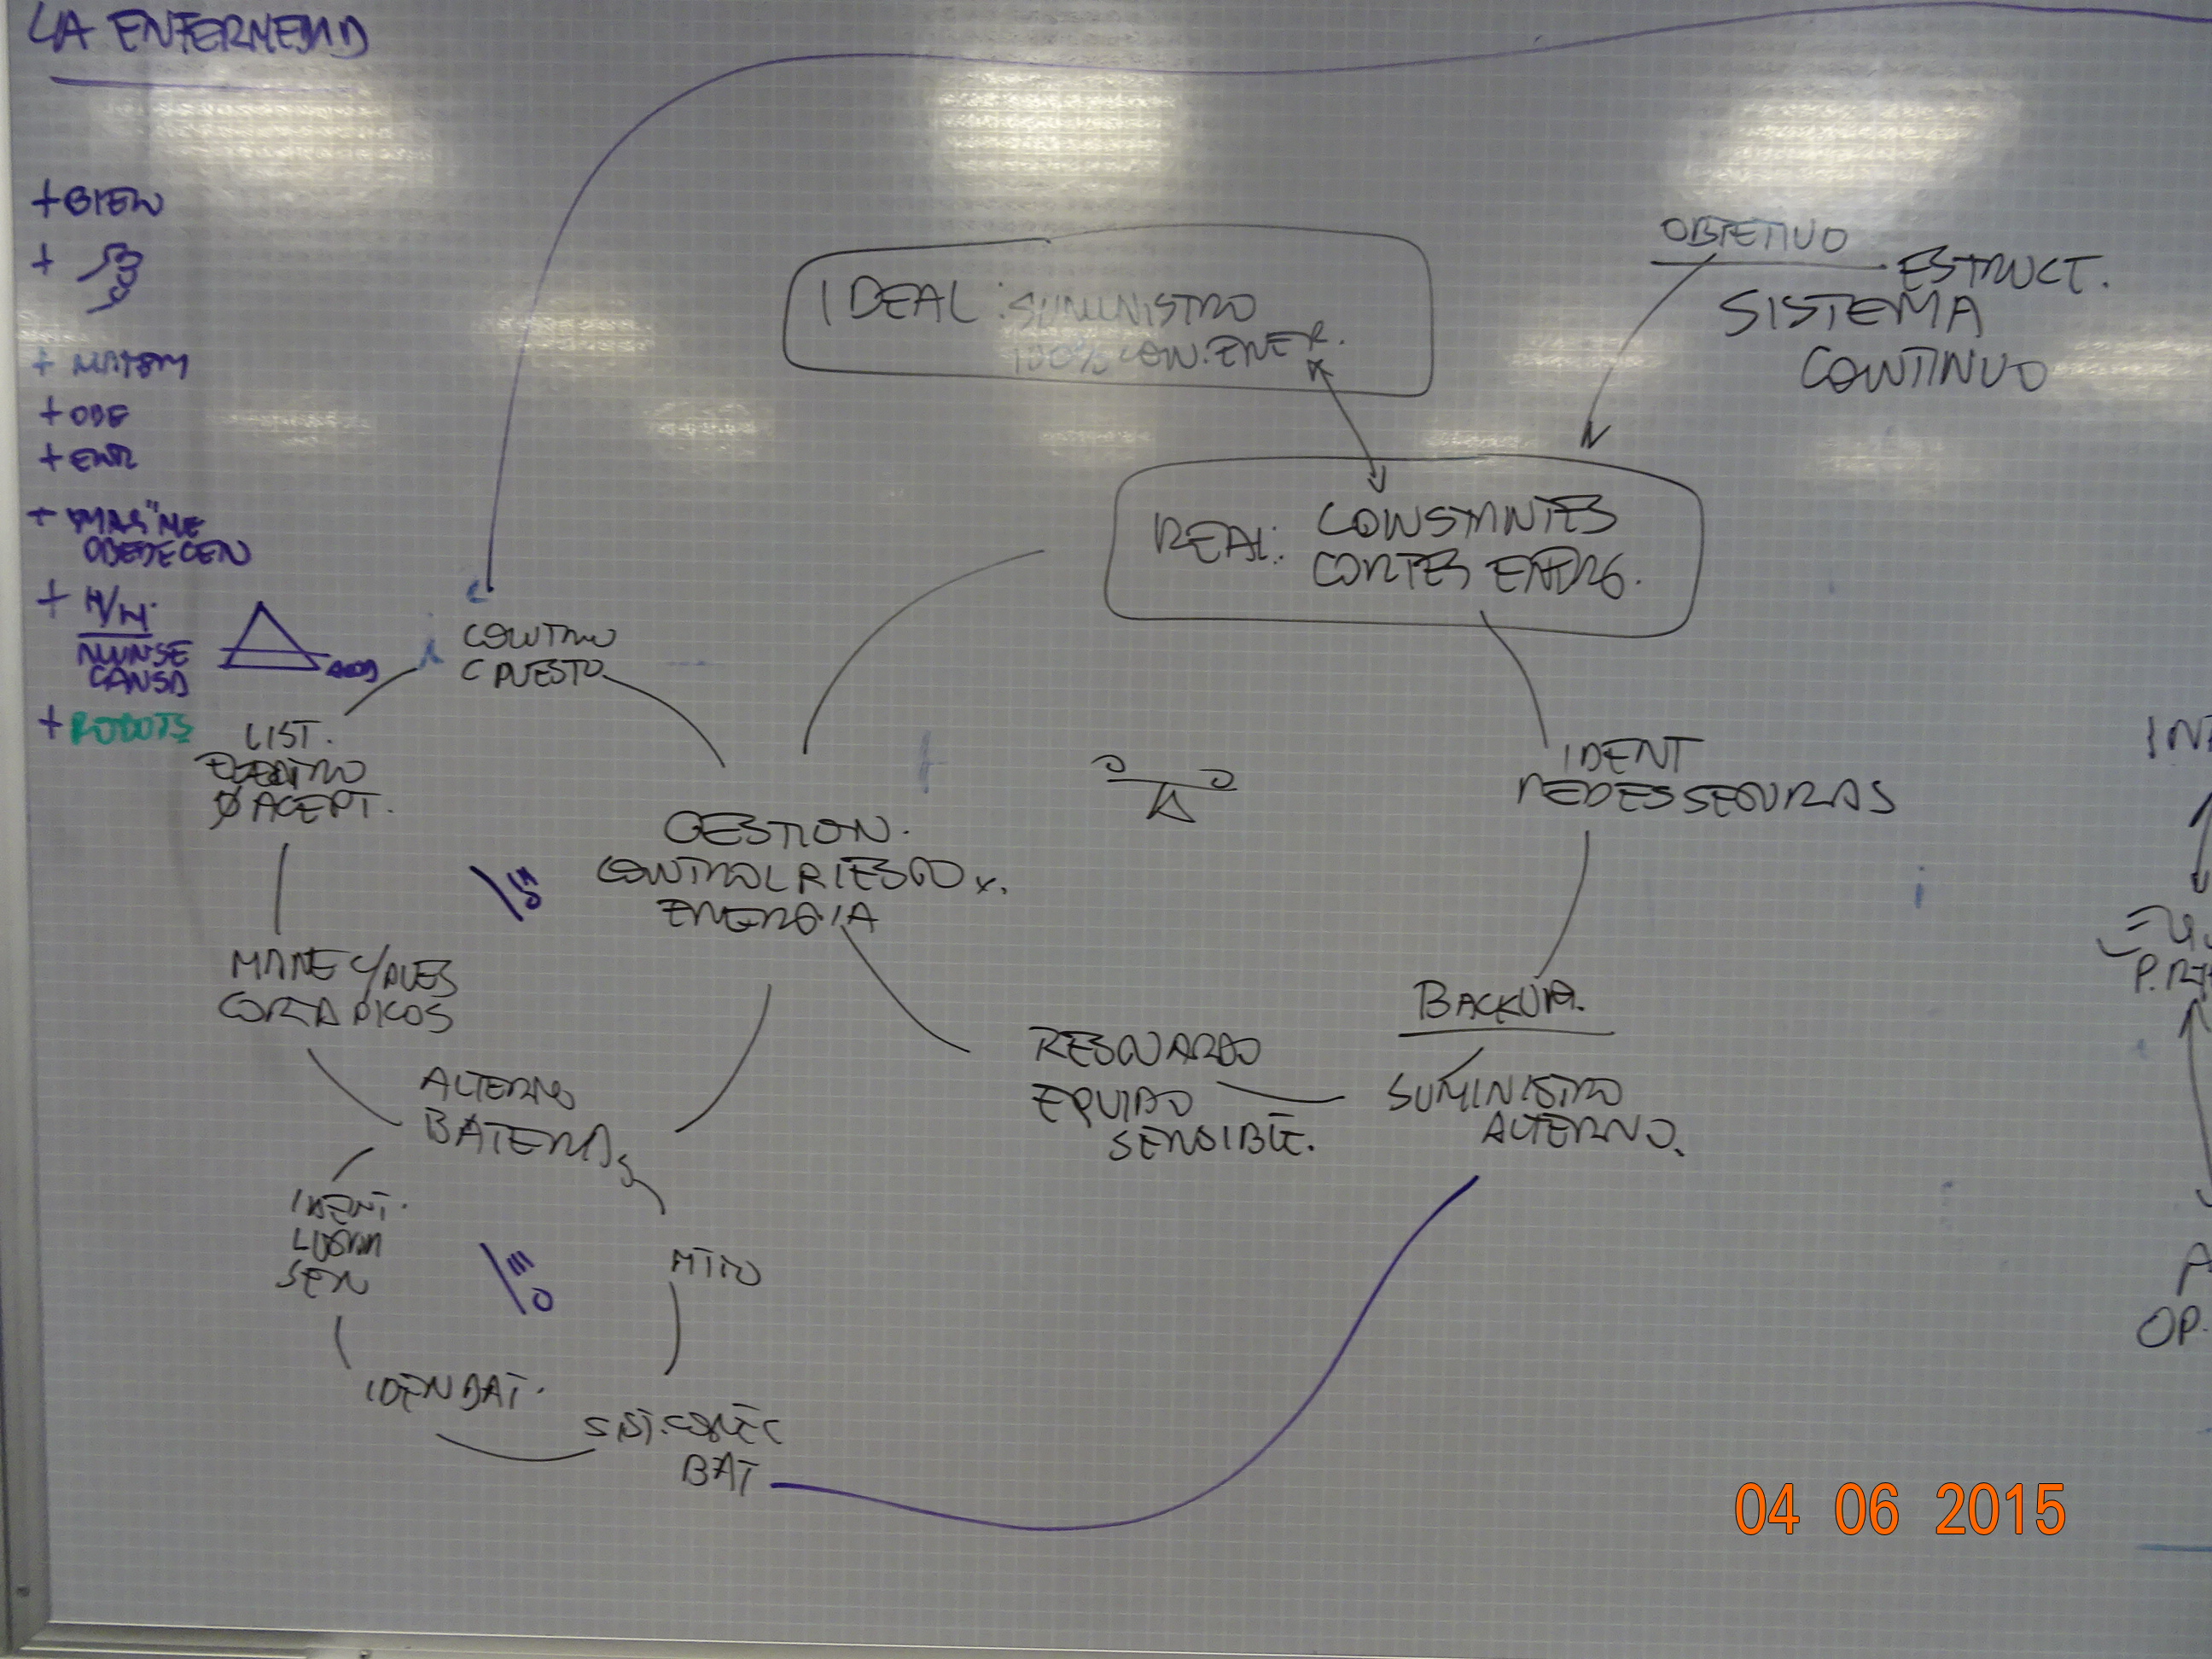 LA ENFERMEDAD
+ BIEN
+
+ MATEM
+ OBE
+ ENR
+ "MAS" ME
OBEDECEN
+ H/H.
NUN SE
CANSA
+ ROBOTS
IDEAL: SUMINISTRO
100% CON. ENER.
OBJETIVO
ESTRUCT.
SISTEMA
CONTINUO
REAL: CONSTANTES
CORTES ENERG.
CONTRO
C PUESTO
LIST.
ELECTRO
Ø ACEPT.
GESTION.
CONTROL RIESGO x.
ENERGIA
IDENT
REDES SEGURAS
CORTA PICOS
ALTERNO
BATERIAS
BACKUP.
RESGUARDO
EQUIPO
SENSIBLE.
SUMINISTRO
ALTERNO.
IDENT.
LUGAR
SEN
MTTO
IDEN BAT.
SIST. CONEC
BAT
INT
P.
A
OP.
04 06 2015